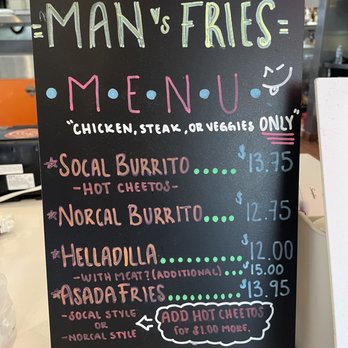 =MAN vs FRIES=
• M • E • N • U •
"CHICKEN, STEAK, OR VEGGIES ONLY"
*SOCAL BURRITO..... $13.75
-HOT CHEETOS-
*NORCAL BURRITO.... $12.75
*HELLADILLA ..... $12.00
-WITH MEAT? (ADDITIONAL).. $15.00
*ASADA FRIES....... $13.95
-SOCAL STYLE
OR
-NORCAL STYLE
ADD HOT CHEETOS
FOR $1.00 MORE.